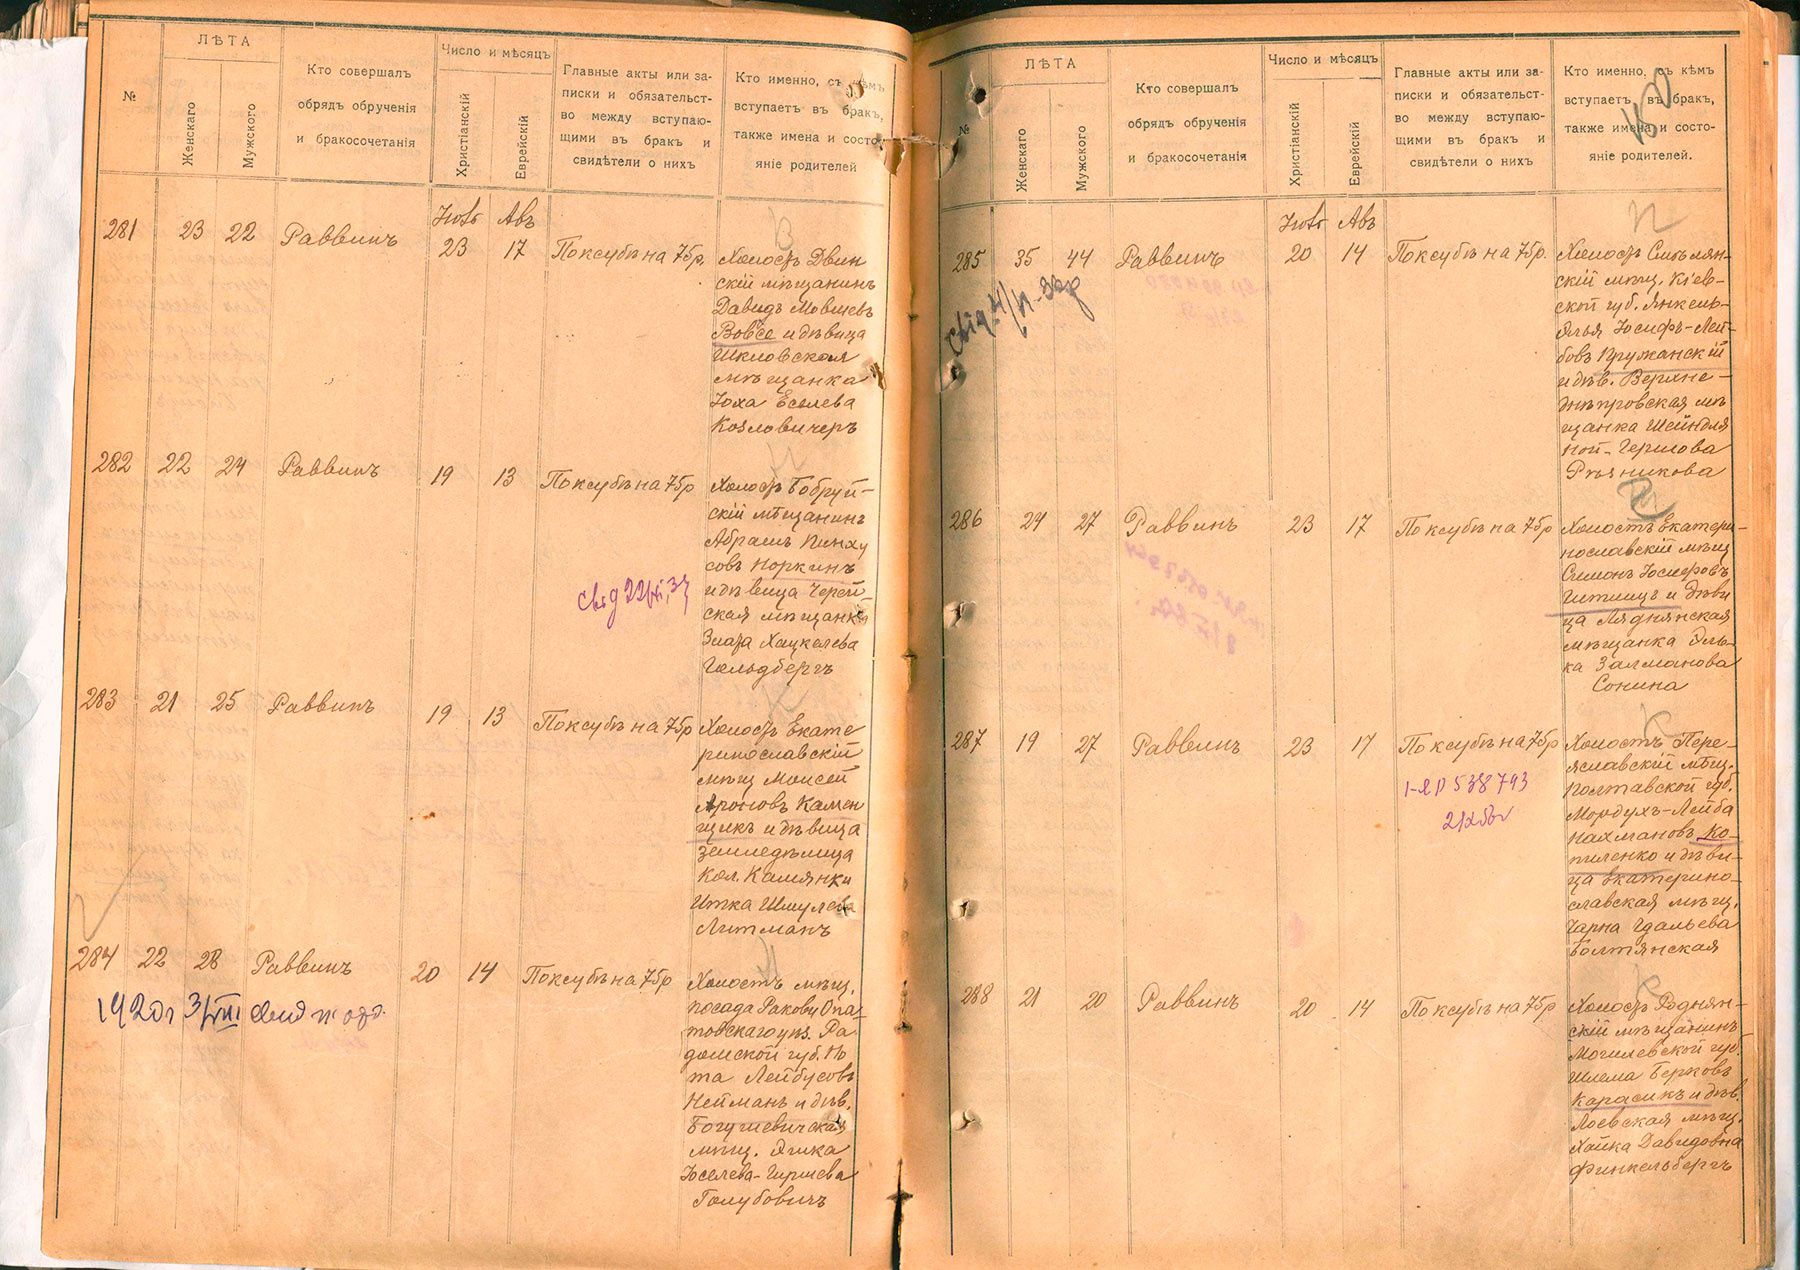 №
ЛѢТА
Женскаго
Мужского
Кто совершалъ
обрядъ обрученія
и бракосочетанія
Число и мѣсяцъ
Христіанскій
Еврейскій
Главные акты или за-
писки и обязательст-
во между вступаю-
щими въ бракъ и
свидѣтели о нихъ
Кто именно, съ кѣмъ
вступаетъ въ бракъ,
также имена и состо-
яніе родителей
281 23 22 Раввинъ
Авъ
23 17 По ксубѣ на 75р.
Холостъ Двин
скій мѣщанинъ
Давидъ Мовшевъ
Вовсе и дѣвица
Шкловская
мѣщанка
Еселева
Козловичеръ
282 22 24 Раввинъ 19 13 По ксубѣ на 75р
Холостъ Бобруй-
скій мѣщанинъ
Абрамъ Пинху
совъ Норкинъ
и дѣвица Черей-
ская мѣщанка
Злата Хацкелева
Гольдбергъ
283 21 25 Раввинъ 19 13 По ксубѣ на 75р
Холостъ Екате
ринославскій
мѣщ Моисей
Ароновъ Камен
щикъ и дѣвица
земледѣлица
кол. Камянки
Итка Шмулева
Литманъ
284 22 28 Раввинъ 20 14 По ксубѣ на 75р
Холостъ мѣщ.
посада Ракову Опа-
товскаго уѣз. Ра-
домской губ. Но
та Лейбусовъ
Нейманъ и дѣв.
Богушевичская
мѣщ.
Юселева-Гиршева
Голубовичъ
№
ЛѢТА
Женскаго
Мужского
Кто совершалъ
обрядъ обрученія
и бракосочетанія
Число и мѣсяцъ
Христіанскій
Еврейскій
Главные акты или за-
писки и обязательст-
во между вступаю-
щими въ бракъ и
свидѣтели о нихъ
Кто именно, съ кѣмъ
вступаетъ въ бракъ,
также имена и состо-
яніе родителей.
Авъ
285 35 44 Раввинъ 20 14 По ксубѣ на 75р.
Холостъ Смѣлян-
скій мѣщ. Кіев-
ской губ. Янкель-
Элья Іосифъ-Лей-
бовъ Пружанскій
и дѣв. Верхне-
днѣпровская мѣ
щанка Шейндля
Гершова
Рѣзникова
286 24 27 Раввинъ 23 17 По ксубѣ на 75р
Холостъ Екатери-
нославскій мѣщ
Симонъ Іосифовъ
Гитлицъ и дѣви
ца Ляднянская
мѣщанка Эль-
ка Залманова
Сонина
287 19 27 Раввинъ 23 17 По ксубѣ на 75р
538793
Холостъ Пере-
яславскій мѣщ.
Полтавской губ.
Мордухъ-Лейба
Нахмановъ Ко-
пиленко и дѣви-
ца Екатерино-
славская мѣщ.
Чарна Гдальева
Болтянская
288 21 20 Раввинъ 20 14 По ксубѣ на 75р
Холостъ Роднян-
скій мѣщанинъ
Могилевской губ.
Шлема Берковъ
Карасикъ и дѣв.
Лоевская мѣщ.
Хайка Давидовна
Финкельбергъ